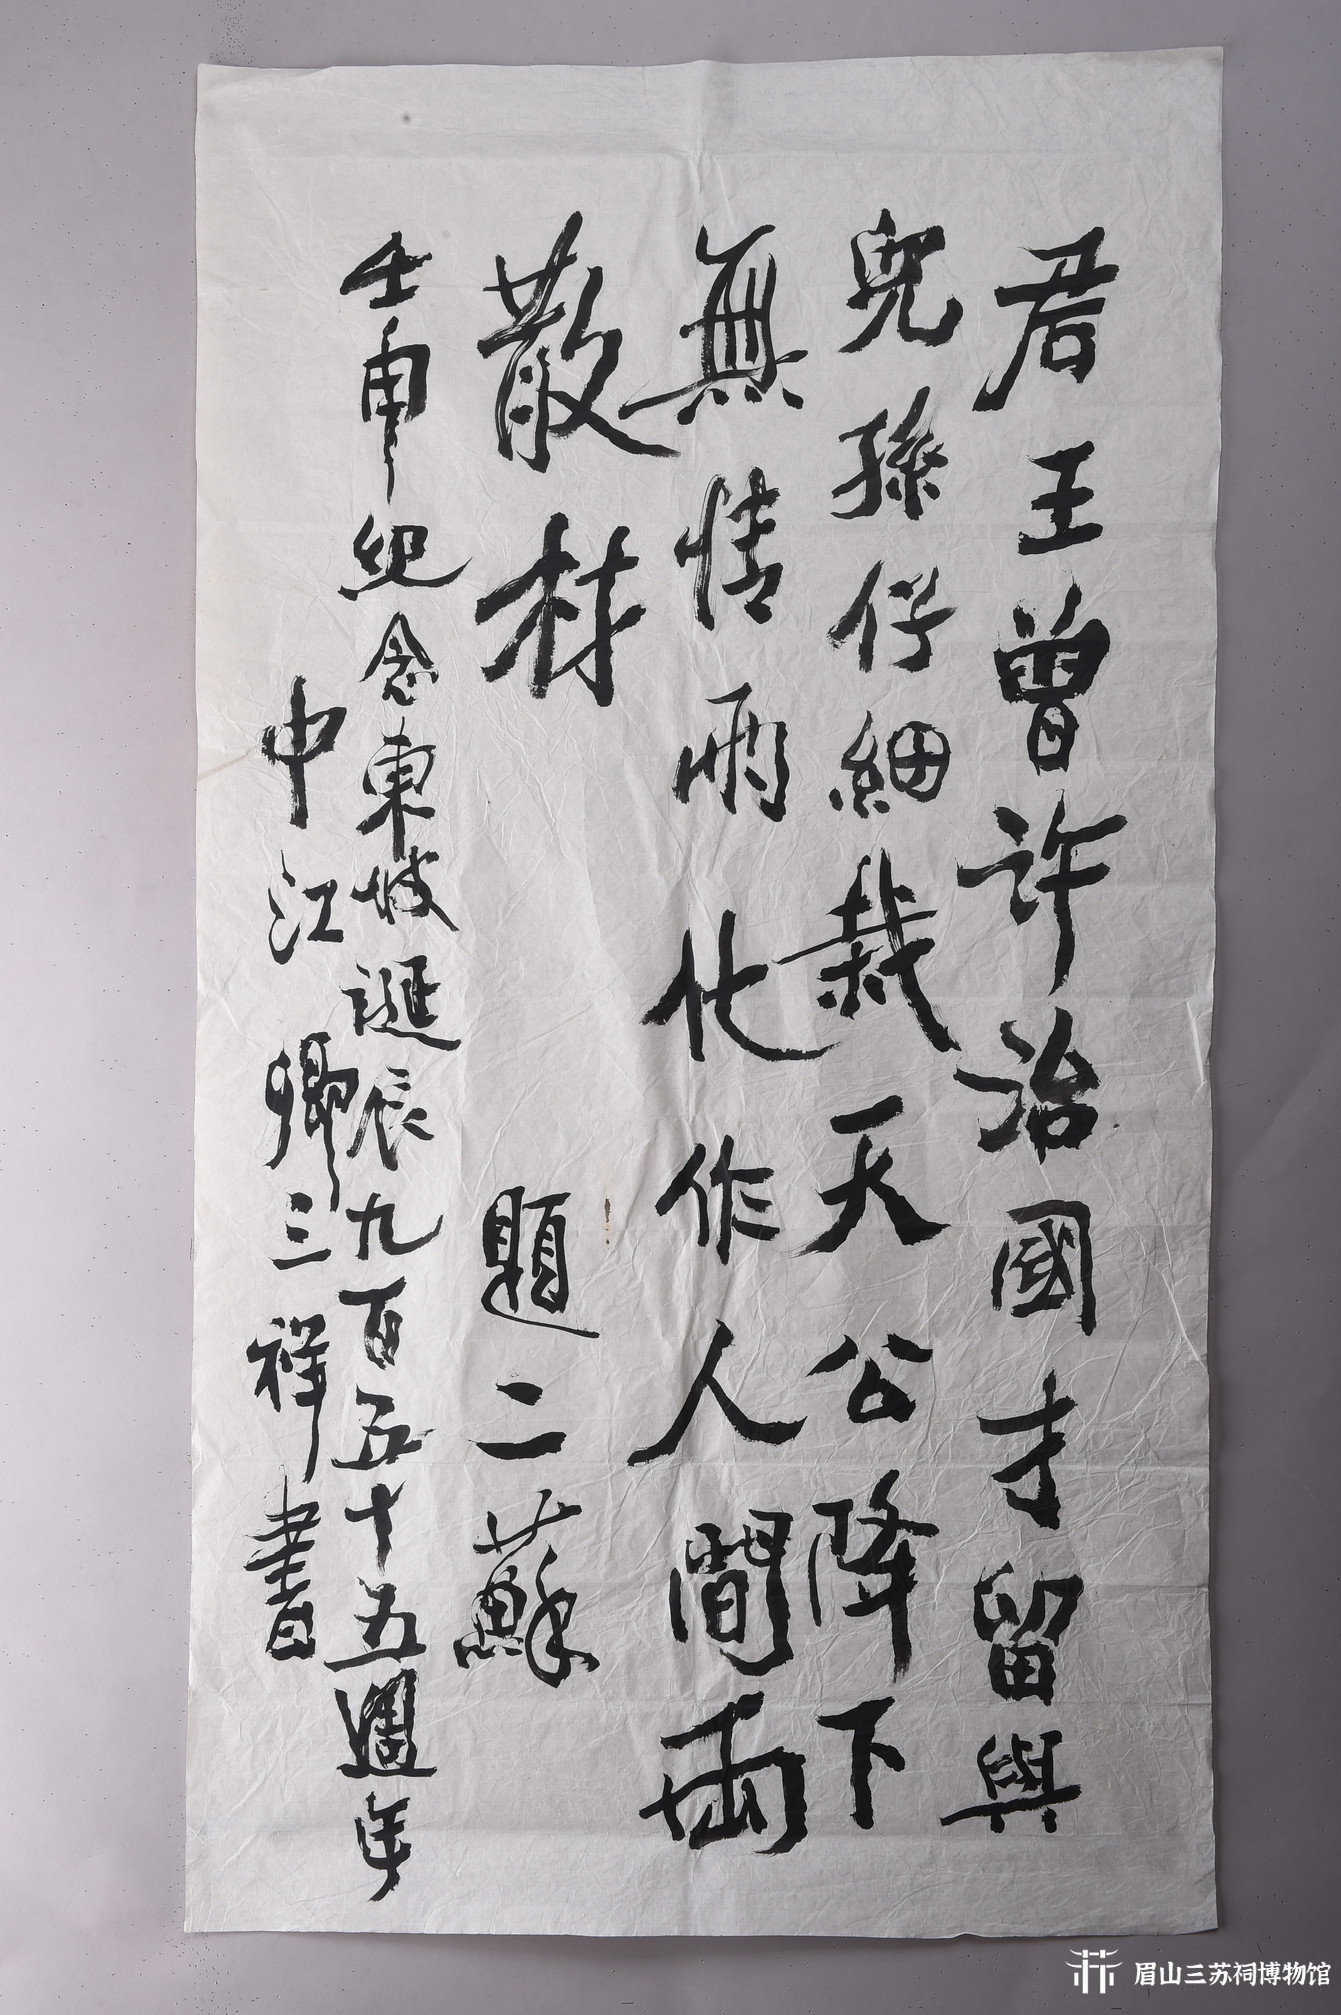 君王曾許治國才留與
兒孫仔細栽天公降下
無情雨化作人間兩
散材 題二蘇
壬申紀念東坡誕辰九百五十五週年
中江卿三祥書
眉山三苏祠博物馆